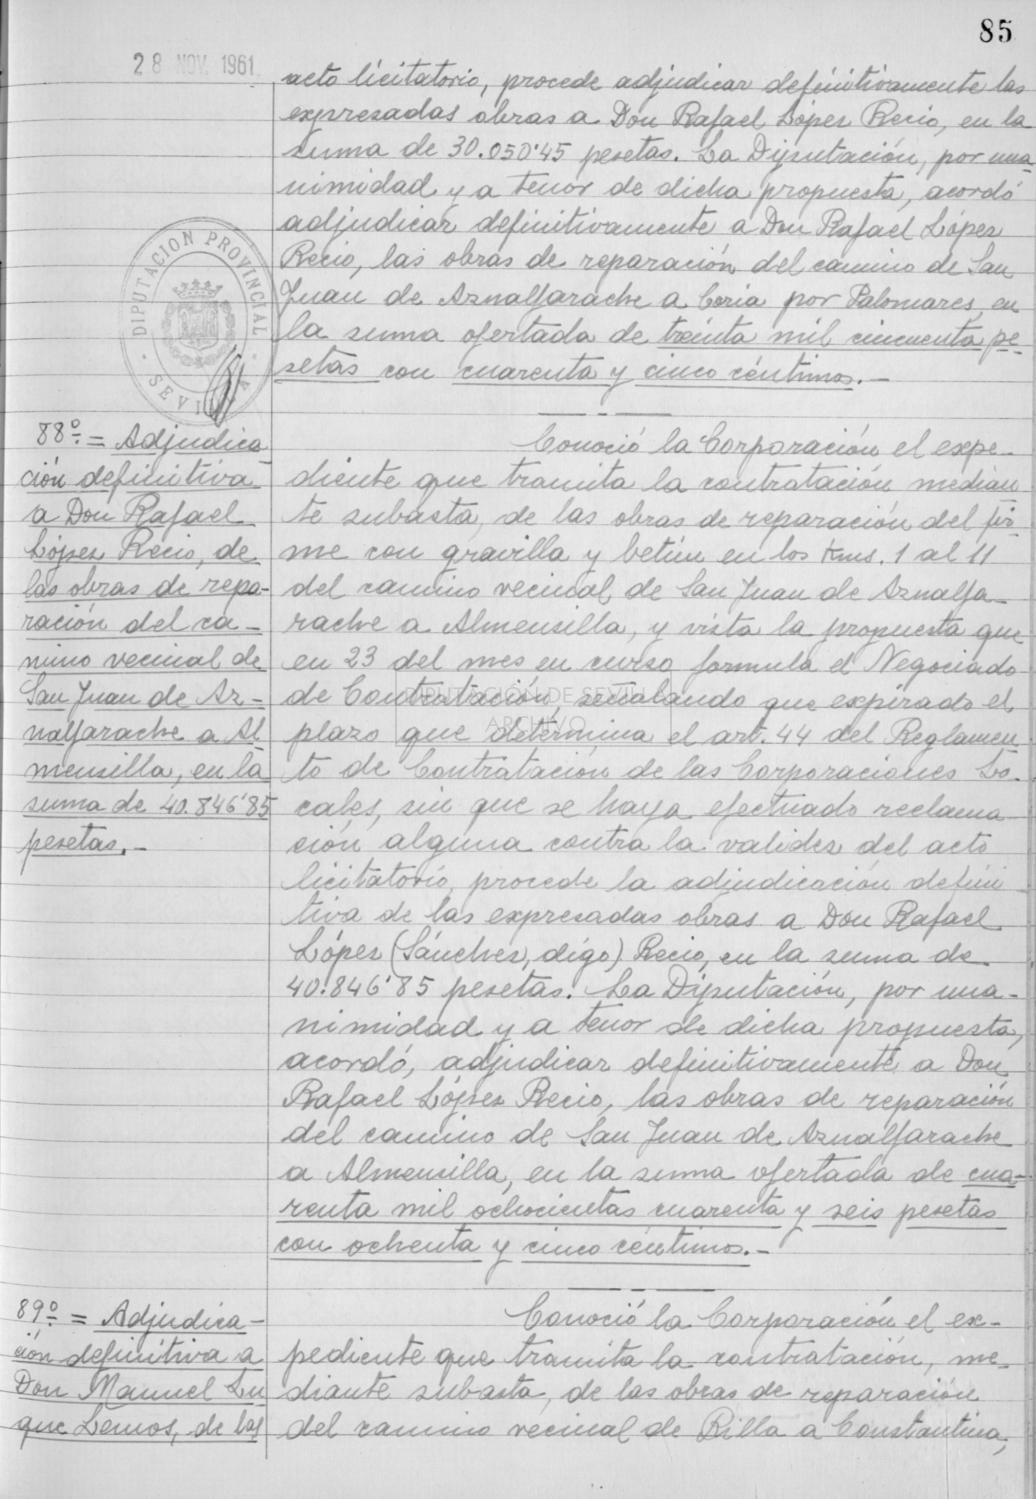 85
28 NOV. 1961
acto licitatorio, procede adjudicar definitivamente las
expresadas obras a Don Rafael López Recio, en la
suma de 30.050'45 pesetas. La Diputación, por una-
nimidad y a tenor de dicha propuesta, acordó
adjudicar definitivamente a Don Rafael López
Recio, las obras de reparación del camino de San
Juan de Aznalfarache a Coria por Palomares, en
la suma ofertada de treinta mil cincuenta pe-
setas con cuarenta y cinco céntimos.-
DIPUTACION PROVINCIAL
SEVILLA
88º.= Adjudica
ción definitiva
a Don Rafael
López Recio, de
las obras de repa-
ración del ca-
mino vecinal de
San Juan de Az-
nalfarache a Al
mensilla, en la
suma de 40.846'85
pesetas.-
Conoció la Corporación el expe-
diente que tramita la contratación median
te subasta, de las obras de reparación del fir-
me con gravilla y betún en los Kms. 1 al 11
del camino vecinal de San Juan de Aznalfa-
rache a Almensilla, y vista la propuesta que
en 23 del mes en curso formula el Negociado
de Contratación, señalando que expirado el
plazo que determina el art. 44 del Reglamen
to de Contratación de las Corporaciones Lo-
cales, sin que se haya efectuado reclama
ción alguna contra la validez del acto
licitatorio, procede la adjudicación defini
tiva de las expresadas obras a Don Rafael
López (Sánchez, digo) Recio, en la suma de
40.846'85 pesetas. La Diputación, por una-
nimidad y a tenor de dicha propuesta,
acordó, adjudicar definitivamente a Don
Rafael López Recio, las obras de reparación
del camino de San Juan de Aznalfarache
a Almensilla, en la suma ofertada de cua-
renta mil ochocientas cuarenta y seis pesetas
con ochenta y cinco céntimos.-
DIPUTACIÓN DE SEVILLA
ARCHIVO
89º.= Adjudica-
ción definitiva a
Don Manuel Lu
que Lemos, de las
Conoció la Corporación el ex-
pediente que tramita la contratación, me-
diante subasta, de las obras de reparación
del camino vecinal de Rilla a Constantina,